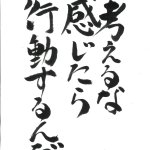 考えるな
感じたら
行動するんだ